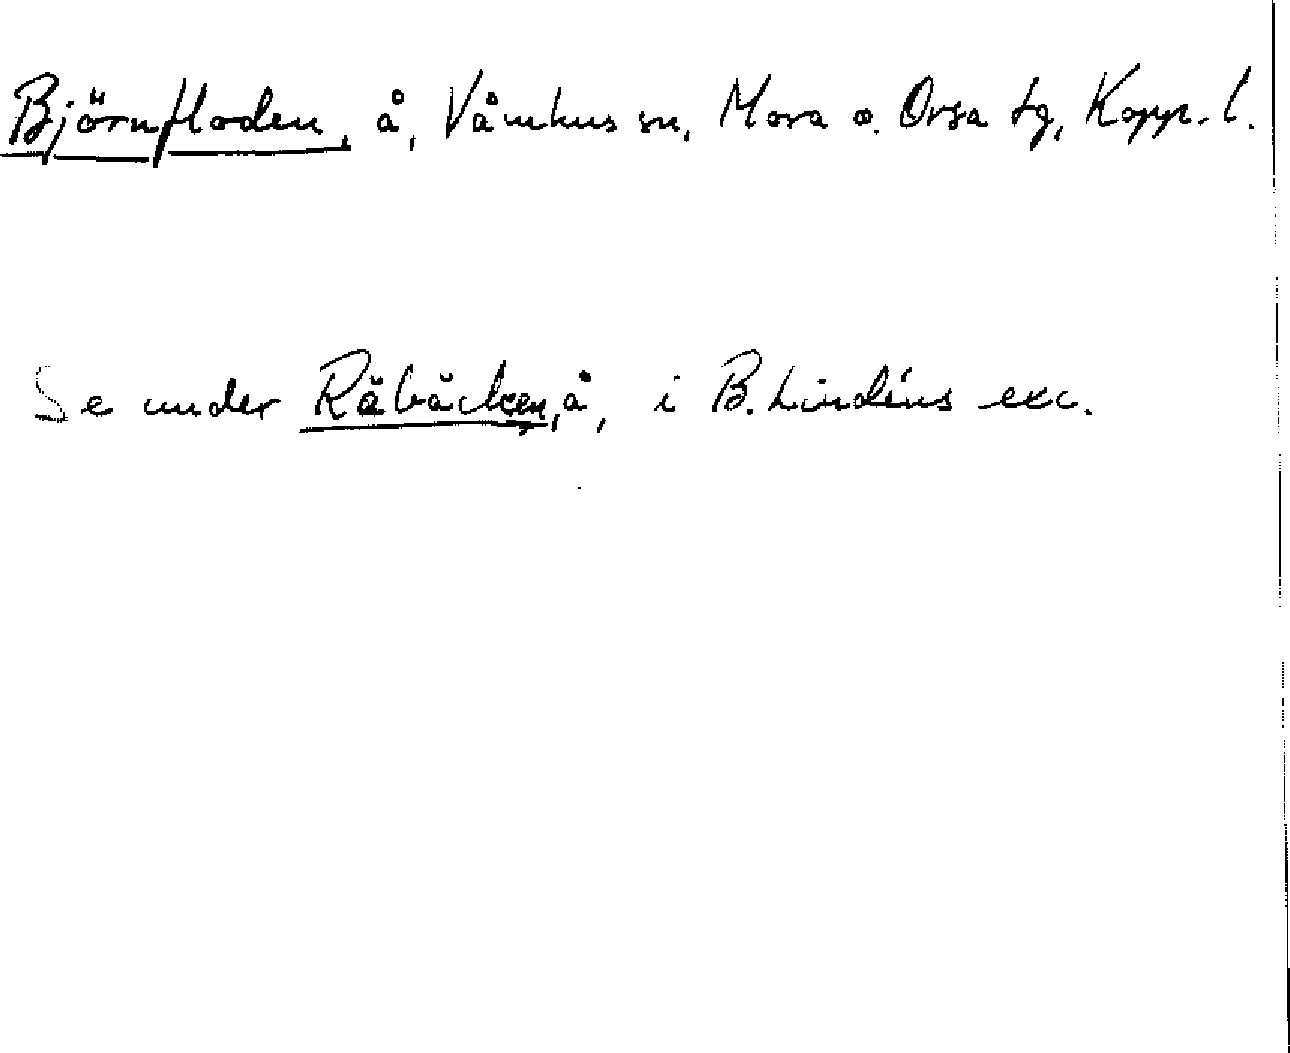 Björnfloden, å, Våmhus sn, Mora o. Orsa tg, Kopp. l.
Se under Råbäcken, å, i B. Lindéns exc.